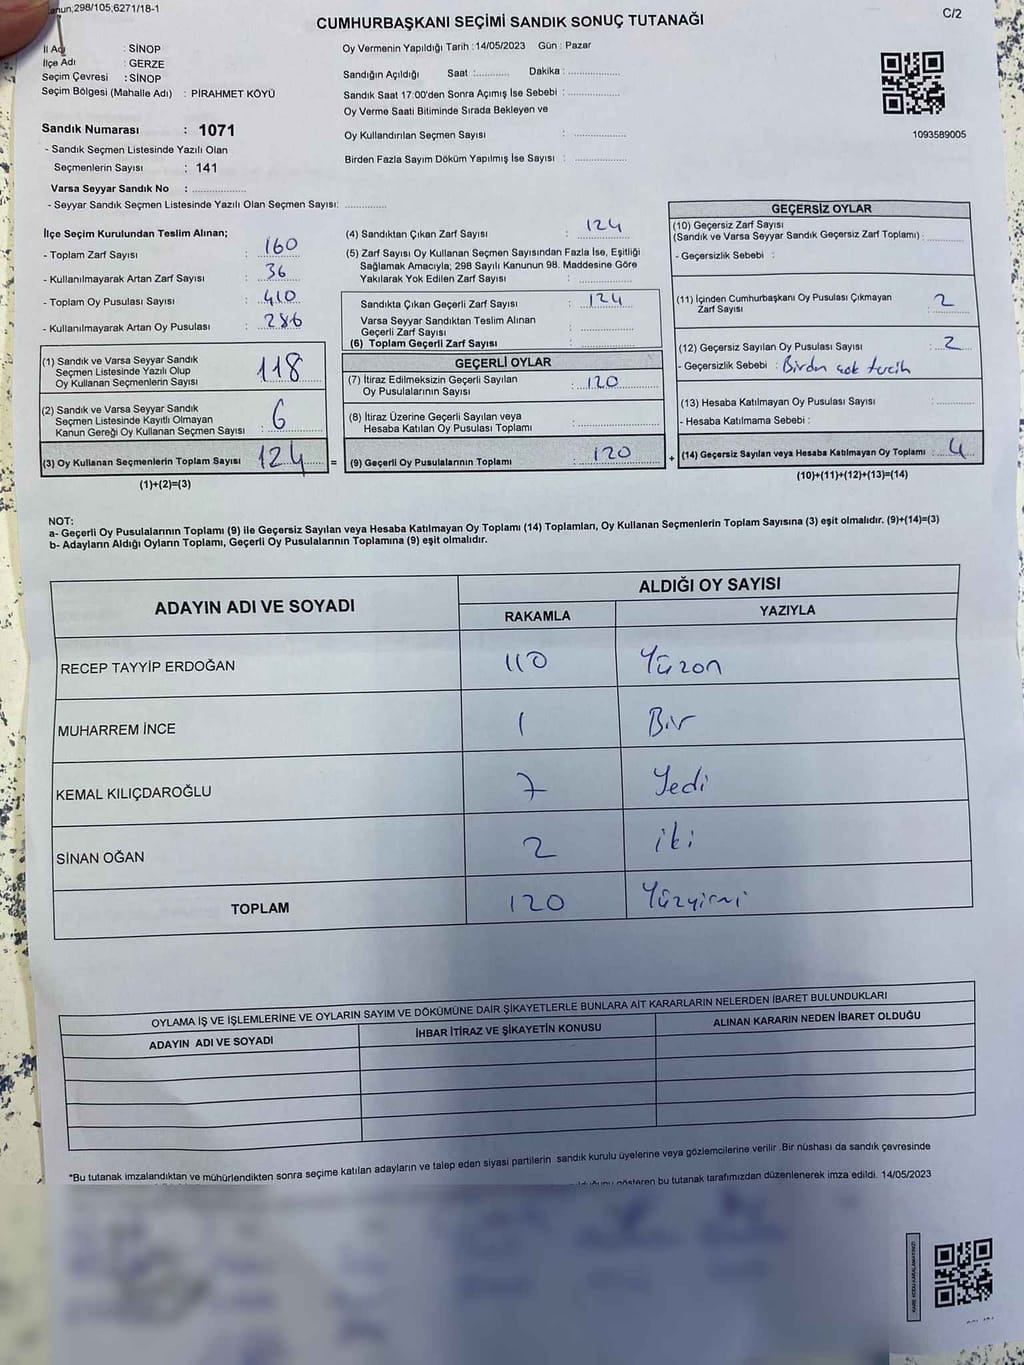 anun,298/105;6271/18-1
C/2
CUMHURBAŞKANI SEÇİMİ SANDIK SONUÇ TUTANAĞI
İl Adı : SİNOP
İlçe Adı : GERZE
Seçim Çevresi : SİNOP
Seçim Bölgesi (Mahalle Adı) : PİRAHMET KÖYÜ
Sandık Numarası : 1071
- Sandık Seçmen Listesinde Yazılı Olan
Seçmenlerin Sayısı : 141
Varsa Seyyar Sandık No : ..............
- Seyyar Sandık Seçmen Listesinde Yazılı Olan Seçmen Sayısı: ............
Oy Vermenin Yapıldığı Tarih : 14/05/2023 Gün : Pazar
Sandığın Açıldığı Saat :........... Dakika : ..............
Sandık Saat 17:00'den Sonra Açımış İse Sebebi : ..............
Oy Verme Saati Bitiminde Sırada Bekleyen ve
Oy Kullandırılan Seçmen Sayısı : ..............
Birden Fazla Sayım Döküm Yapılmış İse Sayısı : ..............
1093589005
İlçe Seçim Kurulundan Teslim Alınan;
- Toplam Zarf Sayısı : 160
- Kullanılmayarak Artan Zarf Sayısı : 36
- Toplam Oy Pusulası Sayısı : 410
- Kullanılmayarak Artan Oy Pusulası : 286
(1) Sandık ve Varsa Seyyar Sandık
Seçmen Listesinde Yazılı Olup
Oy Kullanan Seçmenlerin Sayısı 118
(2) Sandık ve Varsa Seyyar Sandık
Seçmen Listesinde Kayıtlı Olmayan
Kanun Gereği Oy Kullanan Seçmen Sayısı : 6
(3) Oy Kullanan Seçmenlerin Toplam Sayısı 124 =
(1)+(2)=(3)
(4) Sandıktan Çıkan Zarf Sayısı : 124
(5) Zarf Sayısı Oy Kullanan Seçmen Sayısından Fazla İse, Eşitliği
Sağlamak Amacıyla; 298 Sayılı Kanunun 98. Maddesine Göre
Yakılarak Yok Edilen Zarf Sayısı : ..............
Sandıkta Çıkan Geçerli Zarf Sayısı : 124
Varsa Seyyar Sandıktan Teslim Alınan
Geçerli Zarf Sayısı : ..............
(6) Toplam Geçerli Zarf Sayısı : ..............
GEÇERLİ OYLAR
(7) İtiraz Edilmeksizin Geçerli Sayılan
Oy Pusulalarının Sayısı : 120
(8) İtiraz Üzerine Geçerli Sayılan veya
Hesaba Katılan Oy Pusulası Toplamı : ..............
(9) Geçerli Oy Pusulalarının Toplamı : 120 +
GEÇERSİZ OYLAR
(10) Geçersiz Zarf Sayısı
(Sandık ve Varsa Seyyar Sandık Geçersiz Zarf Toplamı) : ..........
- Geçersizlik Sebebi :
(11) İçinden Cumhurbaşkanı Oy Pusulası Çıkmayan
Zarf Sayısı : 2
(12) Geçersiz Sayılan Oy Pusulası Sayısı : 2
- Geçersizlik Sebebi : Birden çok tercih
(13) Hesaba Katılmayan Oy Pusulası Sayısı : ..........
- Hesaba Katılmama Sebebi :
(14) Geçersiz Sayılan veya Hesaba Katılmayan Oy Toplamı : 4
(10)+(11)+(12)+(13)=(14)
NOT:
a- Geçerli Oy Pusulalarının Toplamı (9) ile Geçersiz Sayılan veya Hesaba Katılmayan Oy Toplamı (14) Toplamları, Oy Kullanan Seçmenlerin Toplam Sayısına (3) eşit olmalıdır. (9)+(14)=(3)
b- Adayların Aldığı Oyların Toplamı, Geçerli Oy Pusulalarının Toplamına (9) eşit olmalıdır.
ADAYIN ADI VE SOYADI
ALDIĞI OY SAYISI
RAKAMLA YAZIYLA
RECEP TAYYİP ERDOĞAN 110 Yüzon
MUHARREM İNCE 1 Bir
KEMAL KILIÇDAROĞLU 7 Yedi
SİNAN OĞAN 2 iki
TOPLAM 120 Yüzyirmi
OYLAMA İŞ VE İŞLEMLERİNE VE OYLARIN SAYIM VE DÖKÜMÜNE DAİR ŞİKAYETLERLE BUNLARA AİT KARARLARIN NELERDEN İBARET BULUNDUKLARI
ADAYIN ADI VE SOYADI İHBAR İTİRAZ VE ŞİKAYETİN KONUSU ALINAN KARARIN NEDEN İBARET OLDUĞU
*Bu tutanak imzalandıktan ve mühürlendikten sonra seçime katılan adayların ve talep eden siyasi partilerin sandık kurulu üyelerine veya gözlemcilerine verilir .Bir nüshası da sandık çevresinde
gösteren bu tutanak tarafımızdan düzenlenerek imza edildi. 14/05/2023